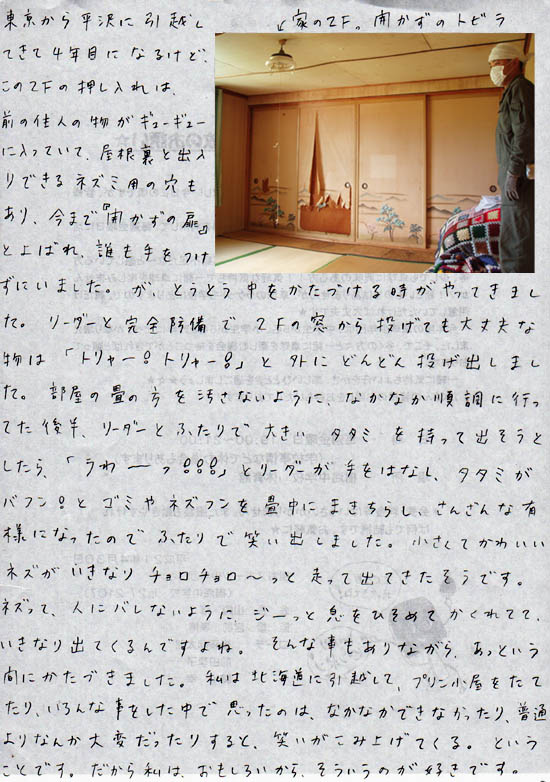 ↓家の2F。開かずのトビラ
東京から平沢に引越し
てきて4年目になるけど、
この2Fの押し入れは、
前の住人の物がギューギュー
に入っていて、屋根裏と出入
りできるネズミ用の穴も
あり、今まで『開かずの扉』
とよばれ、誰も手をつけ
ずにいました。が、とうとう中をかたづける時がやってきまし
た。リーダーと完全防備で、2Fの窓から投げても大丈夫な
物は「トリャー!トリャー!」と外にどんどん投げ出しまし
た。部屋の畳の方を汚さないように、なかなか順調に行っ
てた後半、リーダーとふたりで大きいタタミを持って出そうと
したら、「うわ〜っ!!!」とリーダーが手をはなし、タタミが
バフン!とゴミやネズフンを畳中にまきちらし、さんざんな有
様になったのでふたりで笑い出しました。小さくてかわいい
ネズがいきなりチョロチョロ〜っと走って出てきたそうです。
ネズって、人にバレないようにジーっと息をひそめてかくれてて、
いきなり出てくるんですよね。そんな事もありながら、あっという
間にかたづきました。私は北海道に引越して、プリン小屋をたて
たり、いろんな事をした中で思ったのは、なかなかできなかったり、普通
よりなんか大変だったりすると、笑いがこみ上げてくる。という
ことです。だから私は、おもしろいから、そういうのが好きです。